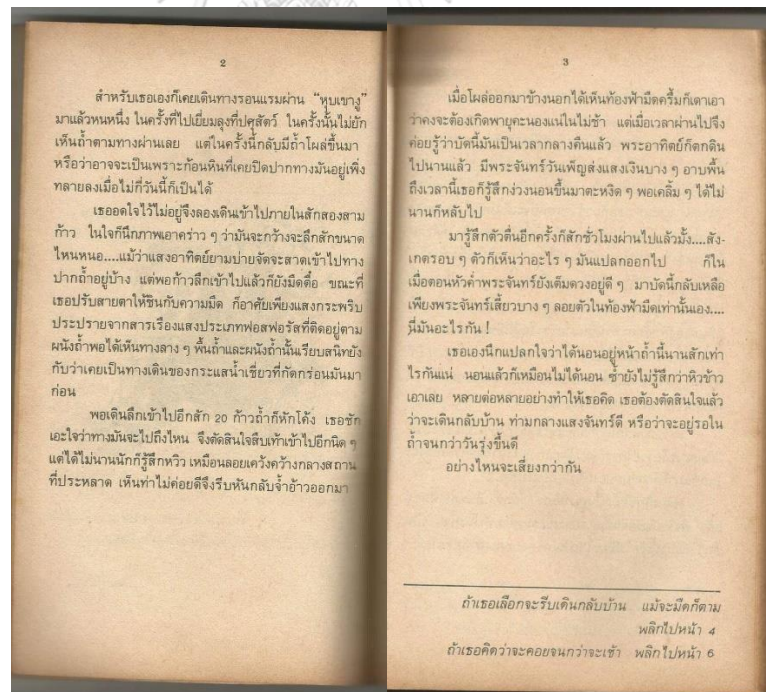 2
สำหรับเธอเองก็เคยเดินทางรอนแรมผ่าน “หุบเขางู”
มาแล้วหนหนึ่ง ในครั้งที่ไปเยี่ยมลุงที่ปศุสัตว์ ในครั้งนั้นไม่ยัก
เห็นถ้ำตามทางผ่านเลย แต่ในครั้งนี้กลับมีถ้ำโผล่ขึ้นมา
หรือว่าอาจจะเป็นเพราะก้อนหินที่เคยปิดปากทางมันอยู่เพิ่ง
ทลายลงเมื่อไม่กี่วันนี้ก็เป็นได้
เธออดใจไว้ไม่อยู่จึงลองเดินเข้าไปภายในสักสองสาม
ก้าว ในใจก็นึกภาพเอาคร่าว ๆ ว่ามันจะกว้างจะลึกสักขนาด
ไหนหนอ....แม้ว่าแสงอาทิตย์ยามบ่ายจัดจะสาดเข้าไปทาง
ปากถ้ำอยู่บ้าง แต่พอก้าวลึกเข้าไปแล้วก็ยังมืดตื้อ ขณะที่
เธอปรับสายตาให้ชินกับความมืด ก็อาศัยเพียงแสงกระพริบ
ประปรายจากสารเรืองแสงประเภทฟอสฟอรัสที่ติดอยู่ตาม
ผนังถ้ำพอได้เห็นทางลาง ๆ พื้นถ้ำและผนังถ้ำนั้นเรียบสนิทยัง
กับว่าเคยเป็นทางเดินของกระแสน้ำเชี่ยวที่กัดกร่อนมันมา
ก่อน
พอเดินลึกเข้าไปอีกสัก 20 ก้าวถ้ำก็หักโค้ง เธอชัก
เอะใจว่าทางมันจะไปถึงไหน จึงตัดสินใจสืบเท้าเข้าไปอีกนิด ๆ
แต่ได้ไม่นานนักก็รู้สึกหวิว เหมือนลอยเคว้งคว้างกลางสถาน
ที่ประหลาด เห็นท่าไม่ค่อยดีจึงรีบหันกลับจ้ำอ้าวออกมา
3
เมื่อโผล่ออกมาข้างนอกได้เห็นท้องฟ้ามืดครึ้มก็เดาเอา
ว่าคงจะต้องเกิดพายุคะนองแน่ในไม่ช้า แต่เมื่อเวลาผ่านไปจึง
ค่อยรู้ว่าบัดนี้มันเป็นเวลากลางคืนแล้ว พระอาทิตย์ก็ตกดิน
ไปนานแล้ว มีพระจันทร์วันเพ็ญส่องแสงเงินบาง ๆ อาบพื้น
ถึงเวลานี้เธอก็รู้สึกง่วงนอนขึ้นมาตะหงิด ๆ พอเคลิ้ม ๆ ได้ไม่
นานก็หลับไป
มารู้สึกตัวตื่นอีกครั้งก็สักชั่วโมงผ่านไปแล้วมั้ง....สัง-
เกตรอบ ๆ ตัวก็เห็นว่าอะไร ๆ มันแปลกออกไป ก็ใน
เมื่อตอนหัวค่ำพระจันทร์ยังเต็มดวงอยู่ดี ๆ มาบัดนี้กลับเหลือ
เพียงพระจันทร์เสี้ยวบาง ๆ ลอยตัวในท้องฟ้ามืดเท่านั้นเอง....
นี่มันอะไรกัน !
เธอเองนึกแปลกใจว่าได้นอนอยู่หน้าถ้ำนี้นานสักเท่า
ไรกันแน่ นอนแล้วก็เหมือนไม่ได้นอน ซ้ำยังไม่รู้สึกว่าหิวข้าว
เอาเลย หลายต่อหลายอย่างทำให้เธอคิด เธอต้องตัดสินใจแล้ว
ว่าจะเดินกลับบ้าน ท่ามกลางแสงจันทร์ดี หรือว่าจะอยู่รอใน
ถ้ำจนกว่าวันรุ่งขึ้นดี
อย่างไหนจะเสี่ยงกว่ากัน
ถ้าเธอเลือกจะรีบเดินกลับบ้าน แม้จะมืดก็ตาม
พลิกไปหน้า 4
ถ้าเธอคิดว่าจะคอยจนกว่าจะเช้า พลิกไปหน้า 6